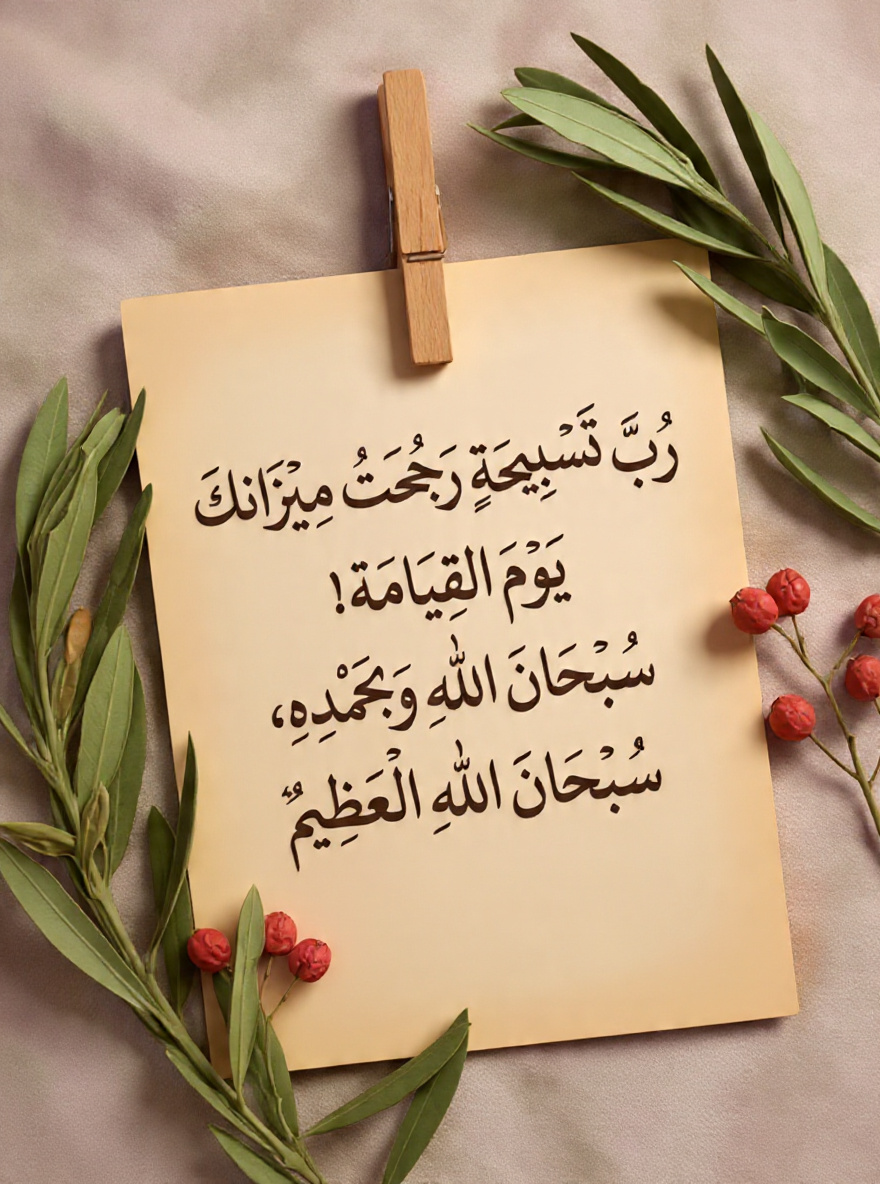 رُبَّ تَسْبِيحَةٍ رَجُحَتُ مِيْزَانكَ
يَوْمَ القِيَامَة!
سُبْحَانَ اللهِ وَبَحَمْدِهِ،
سُبْحَانَ اللهِ الْعَظِيمُ